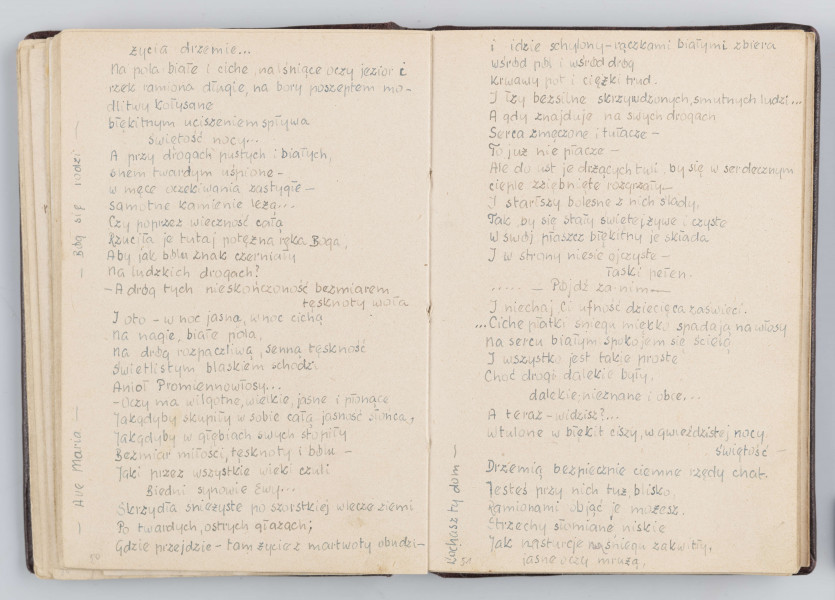 życia drzemie...
Na pola białe i ciche, na lśniące oczy jezior i
rzek ramiona długie, na bory poszeptem mo-
dlitwy kołysane
błękitnym uciszeniem spływa
świętość nocy...
A przy drogach pustych i białych,
snem twardym uśpione -
w męce oczekiwania zastygłe -
samotne kamienie leżą...
Czy poprzez wieczność całą
Rzuciła je tutaj potężna ręka Boga,
Aby jak bólu znak czerniały
na ludzkich drogach?
- A dróg tych nieskończoność bezmiarem
tęsknoty woła
I oto - w noc jasną, w noc cichą
na nagie, białe pola,
na dróg rozpaczliwą, senną tęskność
świetlistym blaskiem schodzi
Anioł Promiennowłosy...
- Oczy ma wilgotne, wielkie, jasne i płonące
Jakgdyby skupiły w sobie całą jasność słońca,
Jakgdyby w głębiach swych stopiły
Bezmiar miłości, tęsknoty i bólu -
Jaki przez wszystkie wieki czuli
Biedni synowie Ewy...
Skrzydła śnieżyste po szorstkiej wlecze ziemi
Po twardych, ostrych głazach;
Gdzie przejdzie - tam życie z martwoty obudzi -
- Ave Maria -
- Bóg się rodzi -
50
i idzie schylony - rączkami białymi zbiera
wśród pól i wśród dróg
krwawy pot i ciężki trud.
I łzy bezsilne skrzywdzonych, smutnych ludzi...
A gdy znajduje na swych drogach
Serca zmęczone i tułacze -
To już nie płacze -
Ale do ust je drżących tuli, by się w serdecznym
cieple zziębnięte rozgrzały -
I starłszy bolesne z nich ślady,
Tak, by się stały święte, żywe i czyste
W swój płaszcz błękitny je składa
I w strony niesie ojczyste -
łaski pełen.
..... - Pójdź za nim -
I niechaj Ci ufność dziecięca zaświeci.
...Ciche płatki śniegu miękko spadają na włosy
na sercu białym spokojem się ściele
I wszystko jest takie proste
Choć drogi dalekie były,
dalekie, nieznane i obce...
A teraz - widzisz?...
wtulone w błękit ciszy, w gwieździstej nocy
świętość -
Drzemią bezpiecznie ciemne rzędy chat.
Jesteś przy nich tuż, blisko,
ramionami objąć je możesz.
Strzechy słomiane niskie
Jak nasturcje na śniegu zakwitły,
jasne oczy mrużą,
Kochasz ty dom -
51